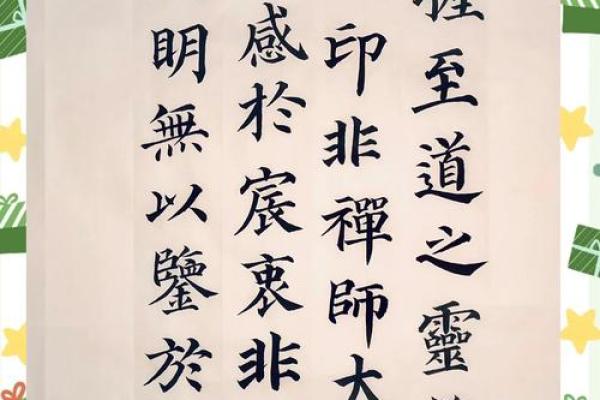 至道之靈
印非禪師大
感於宸衷非
明無以鑒於